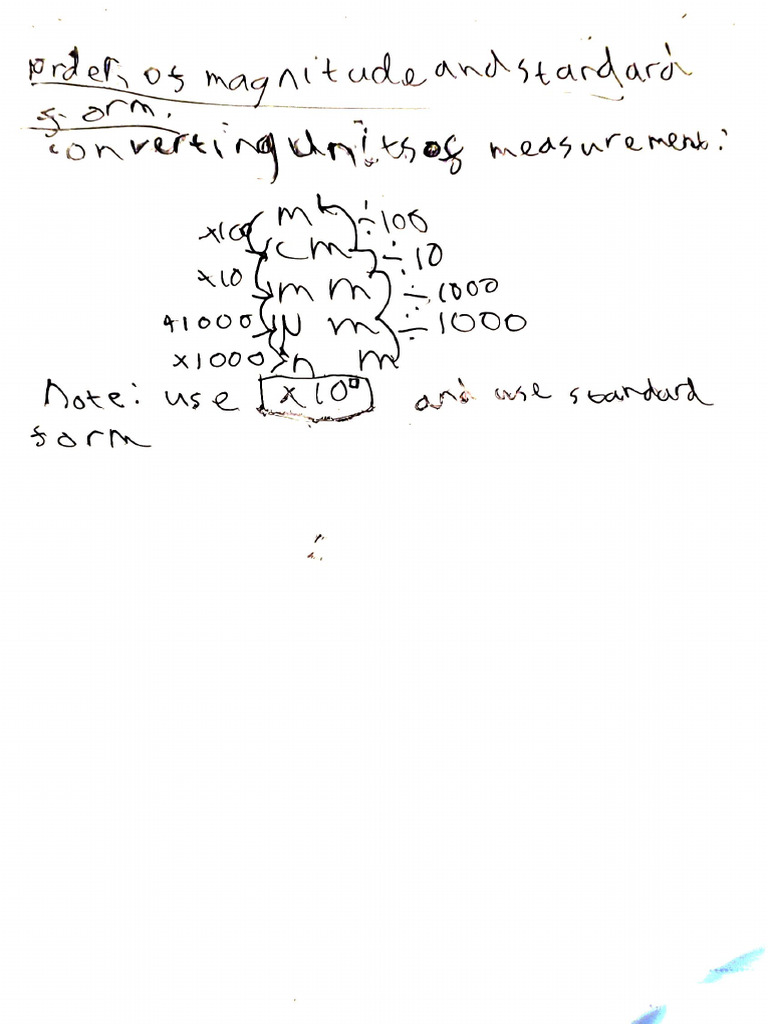 order of magnitude and standard
form.
converting units of measurement:
x100 m ÷100
cm ÷10
x10 mm ÷1000
x1000 μm ÷1000
x1000 nm
Note: use x10▫ and use standard
form